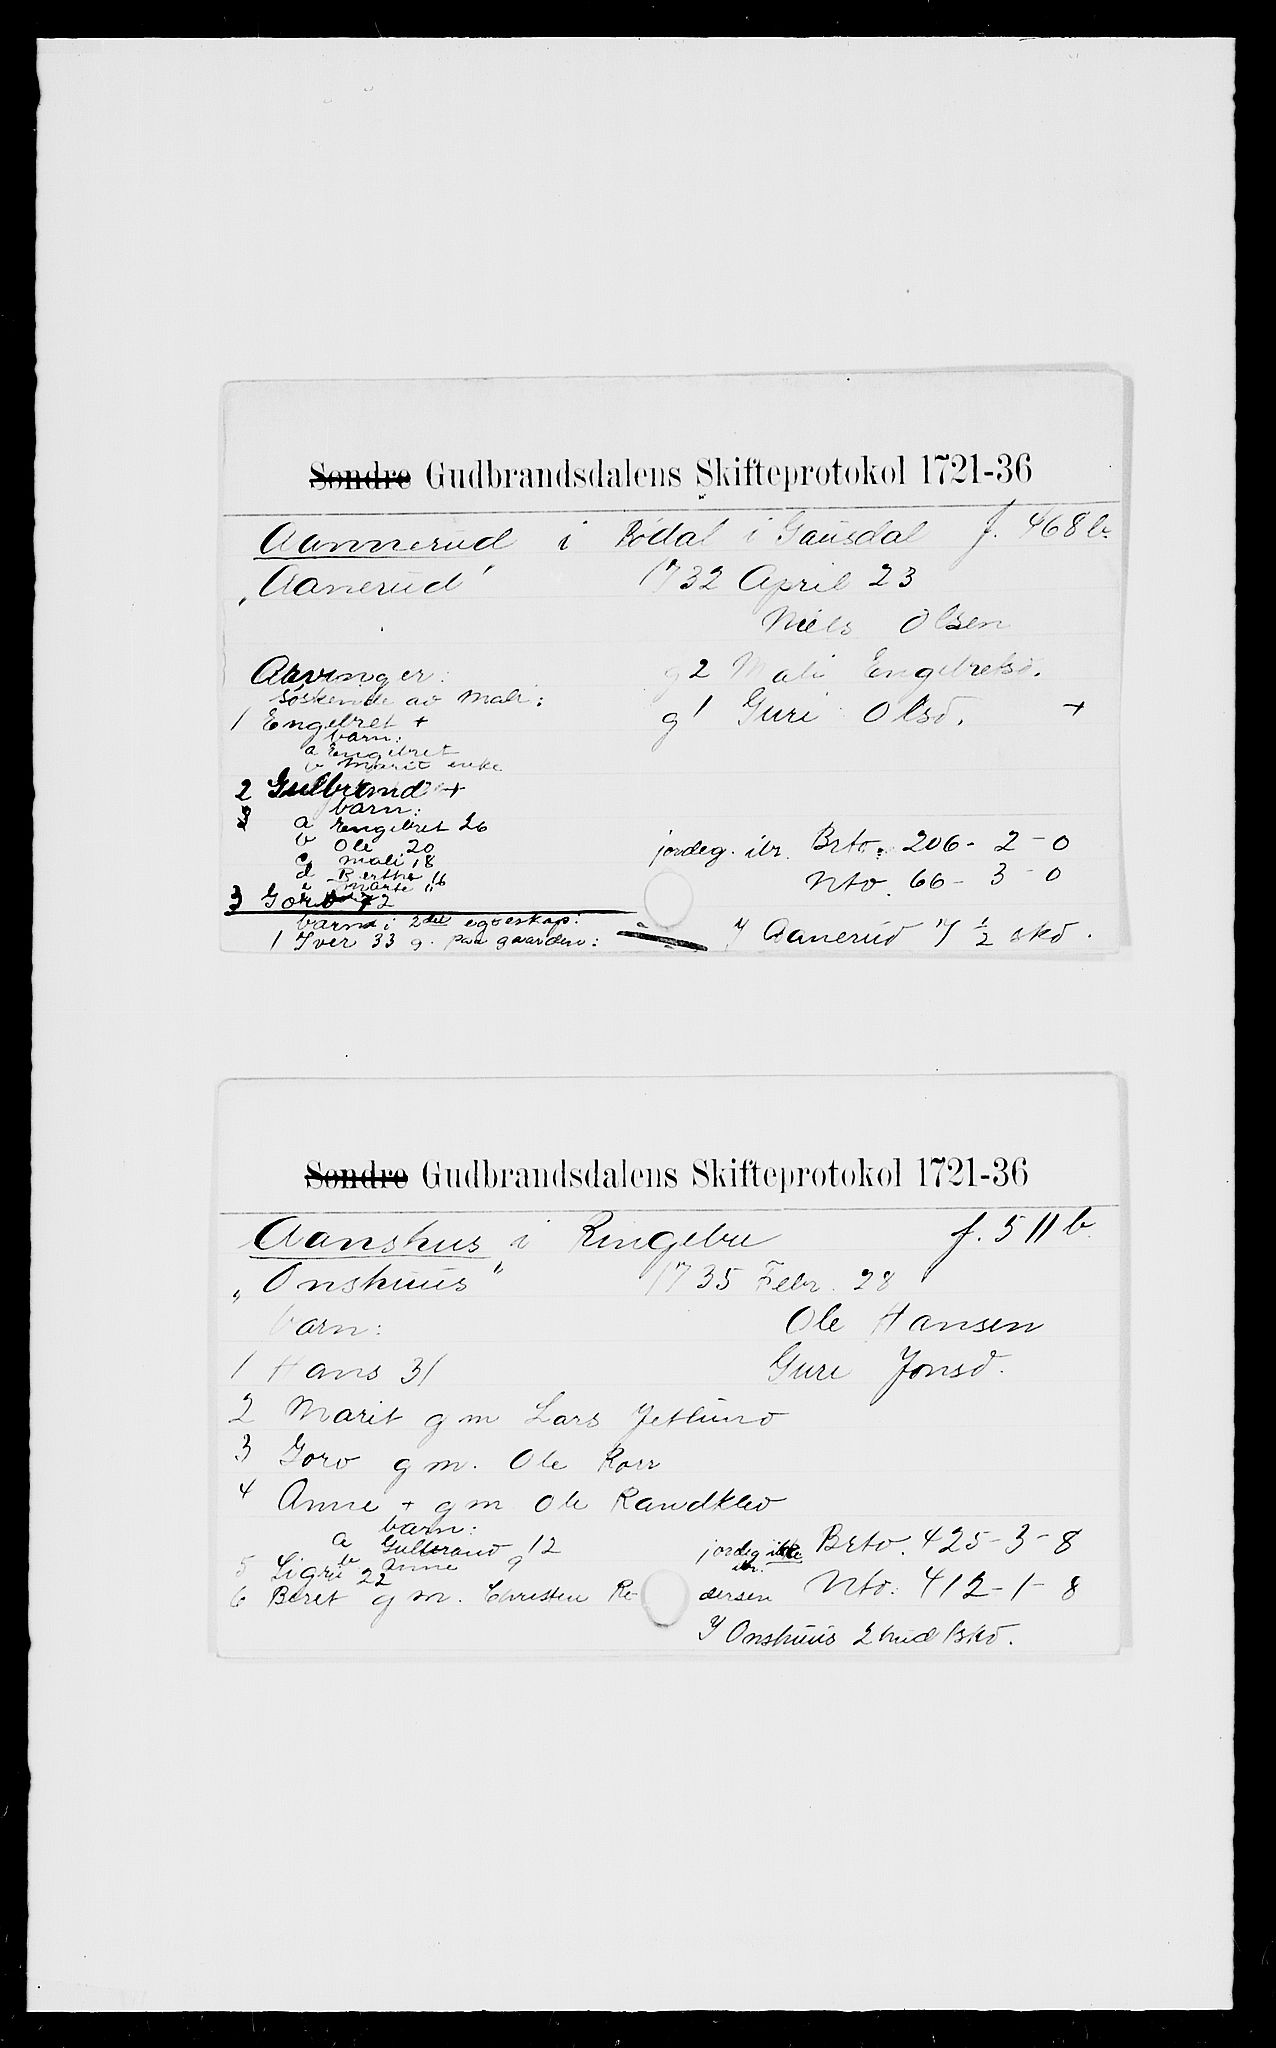 Søndre Gudbrandsdalens Skifteprotokol 1721-36
Aannerud i Bødal i Gausdal f. 468 b.
„Aanerud" 1732 April 23
Niels Olsen
Arvinger: g2 Mali Engebretsd.
søskende av Mali:
1 Engebret + g1 Guri Olsd. +
barn:
a Engebret
b Marit enke
2 Gulbrand +
barn:
a Engebret 26
b Ole 20 jordeg. ibr. Brto. 206-2-0
c Mali 18
d Berthe 16 Nto. 66-3-0
e Marte "
3 Goro 72
barn i 2det egteskap:
1 Iver 33 g. paa gaarden: I Aanerud 7 1/2 skd.
Søndre Gudbrandsdalens Skifteprotokol 1721-36
Aanshus i Ringebu f. 511 b
„Onshuus" 1735 Febr. 28
barn: Ole Hansen
1 Hans 31 Guri Jonsd.
2 Marit g m Lars Jetlund
3 Goro g m. Ole
4 Anne + g m Ole Randklev
barn:
a Gulbrand 12 jordeg ikke ibr. Brto. 425-3-8
b Anne 9
5 Sigri 22
6 Beret g m. Christen Pedersen Nto: 412-1-8
I Onshuus 2 hud 1 skd.